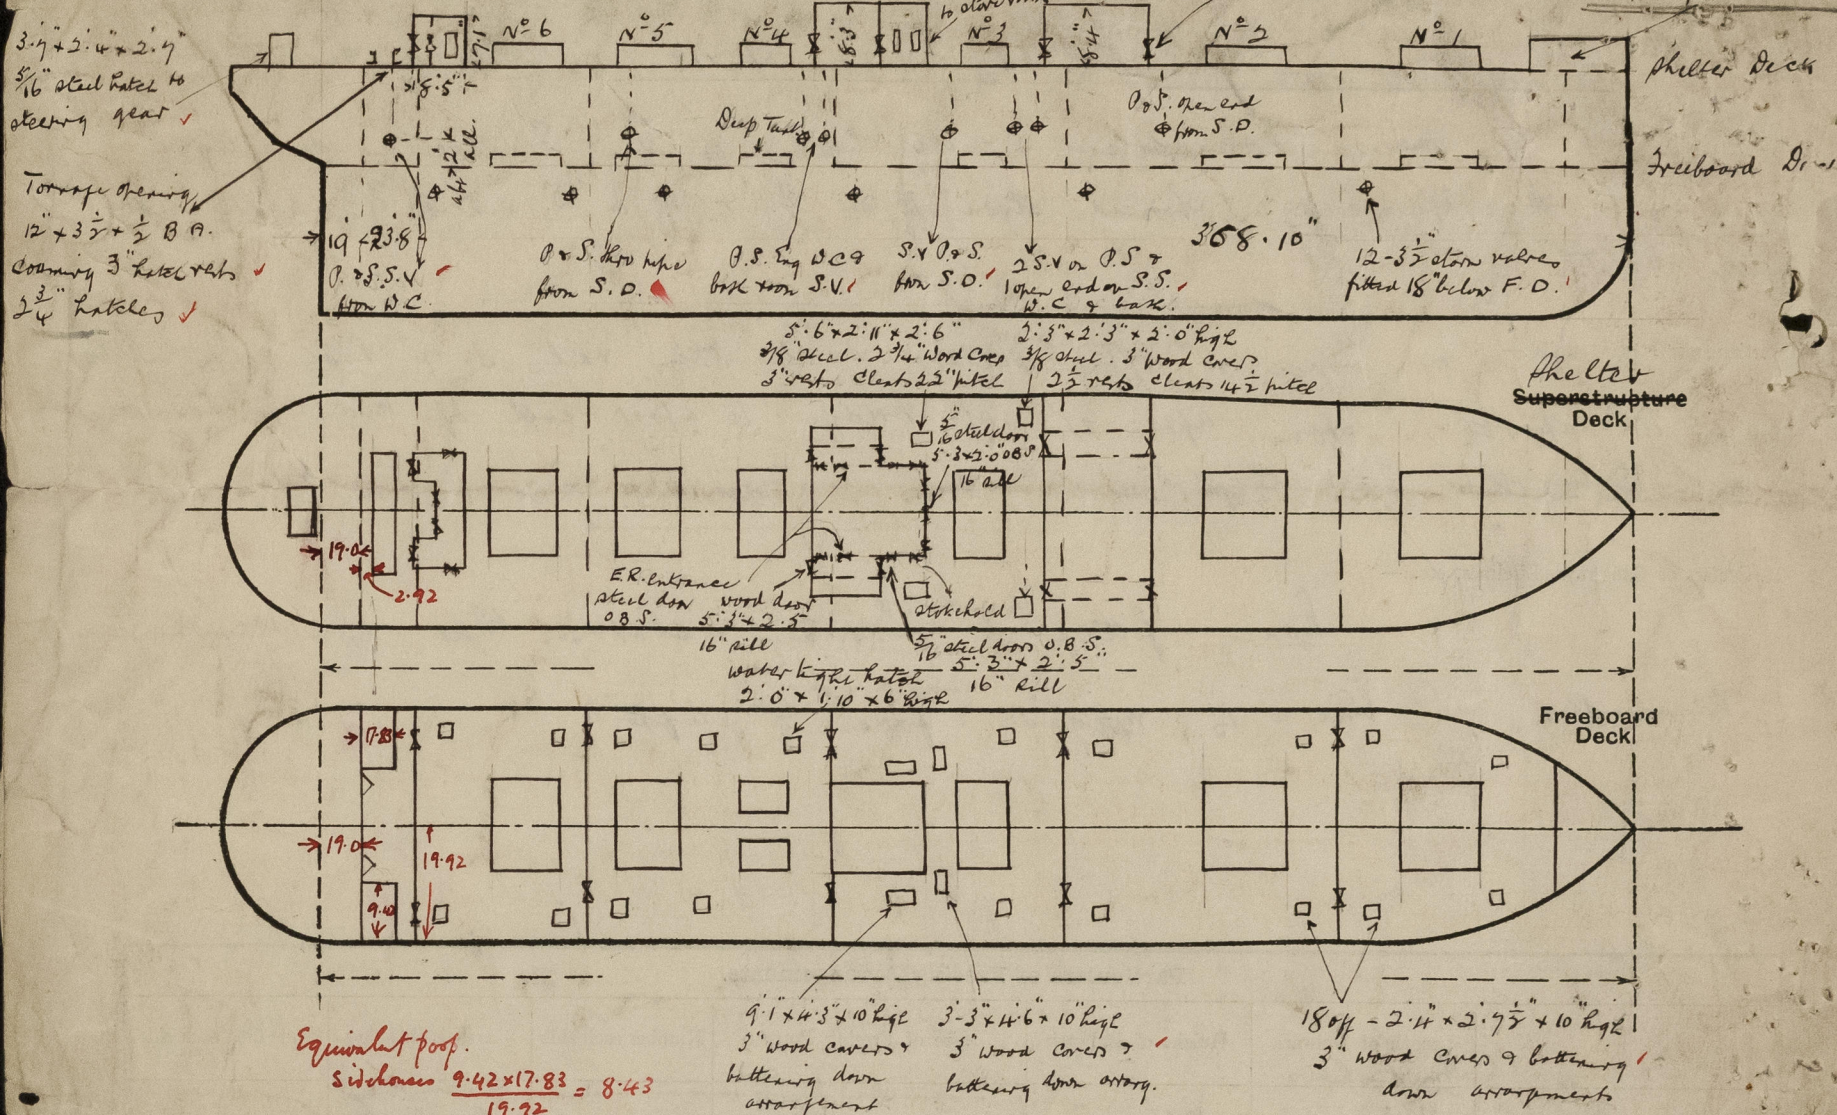 3'.7" x 2'.4" x 2'.7"
5/16" steel hatch to
steering gear
Tonnage opening
12" x 3 1/2 x 1/2 B A.
coaming 3" hatch rests
2 3/4" hatches
Nº 6
Nº 5
Nº 4
Nº 3
Nº 2
Nº 1
to
8'.5"
Deep Tank
P & S. open end
from S.D.
Shelter Deck
Freeboard
19
23.8
P. & S. S.V
from W.C.
P & S. thro pipe
from S.D.
P.S. Eng W.C &
bath room S.V.
S.V P. & S.
from S.D.
2 S.V on P.S &
1 open end on S.S.
W.C & bath.
368.10"
12 - 3 1/2" storm valves
fitted 18" below F.D.
5'.6" x 2'.11" x 2'.6"
3/8" steel. 2 3/4" Wood Covers
3" rests cleats 22" pitch
2'.3" x 2'.3" x 2'.0" high
3/8 steel. 3" Wood covers.
2 1/2 rests cleats 14 1/2 pitch
Shelter
Superstructure
Deck
5/16" steel door
5'.3 x 2'.0" O.B.S
16" sill
19.0
2.92
E.R. entrance
steel door
O.B.S.
wood door
5'.3" x 2'.5
16" sill
stokehold
5/16" steel doors O.B.S.
5'.3" x 2'.5"
16" sill
water tight hatch
2'.0" x 1'.10" x 6" high
Freeboard
Deck
17.83
19.0
19.92
9.42
9'.1" x 4'.3" x 10" high
3" wood covers &
battening down
arrangement
3'-3" x 4'.6" x 10" high
3" wood covers &
battening down arrang.
18 off - 2'.4" x 2'.7 1/2" x 10" high
3" wood covers & battening
down arrangements
Equivalent poop.
Sidehouses 9.42 x 17.83 = 8.43
19.92